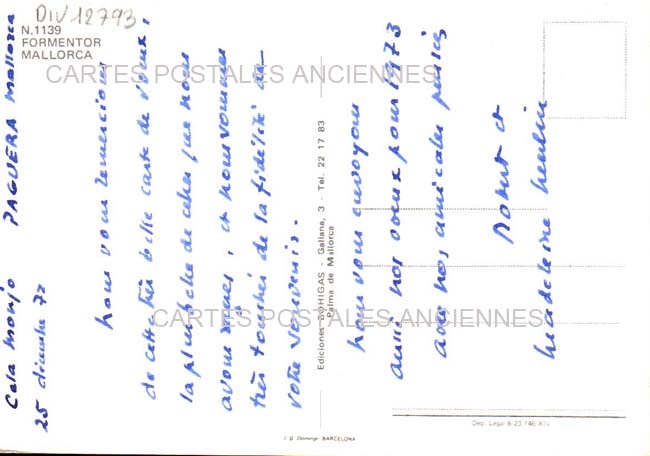 DIV 12793
N.1139
FORMENTOR
MALLORCA
CARTES POSTALES ANCIENNES
Cala Monjo PAGUERA Mallorca
25 décembre 72
nous vous remercions
de cette très belle carte de vœux,
la plus belle de celles que nous
avons reçues, et nous sommes
très touchés de la fidélité de
votre souvenir.
Ediciones BOHIGAS - Galiana, 3 - Tel. 22 17 83
Palma de Mallorca
nous vous envoyons
aussi nos voeux pour 1973
avec nos amicales pensées
Robert et
Madeleine
CARTES POSTALES ANCIENNES
J. G. Domingo BARCELONA
Dep. Legal B-23.146-XIV